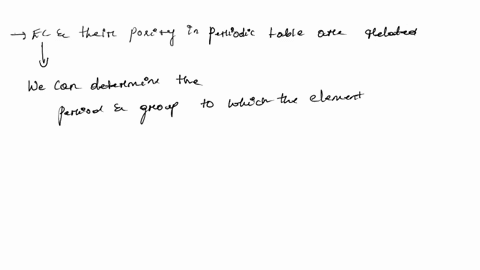 → EC & their posi in periodic table are related
We can determine the
period & group to which the element